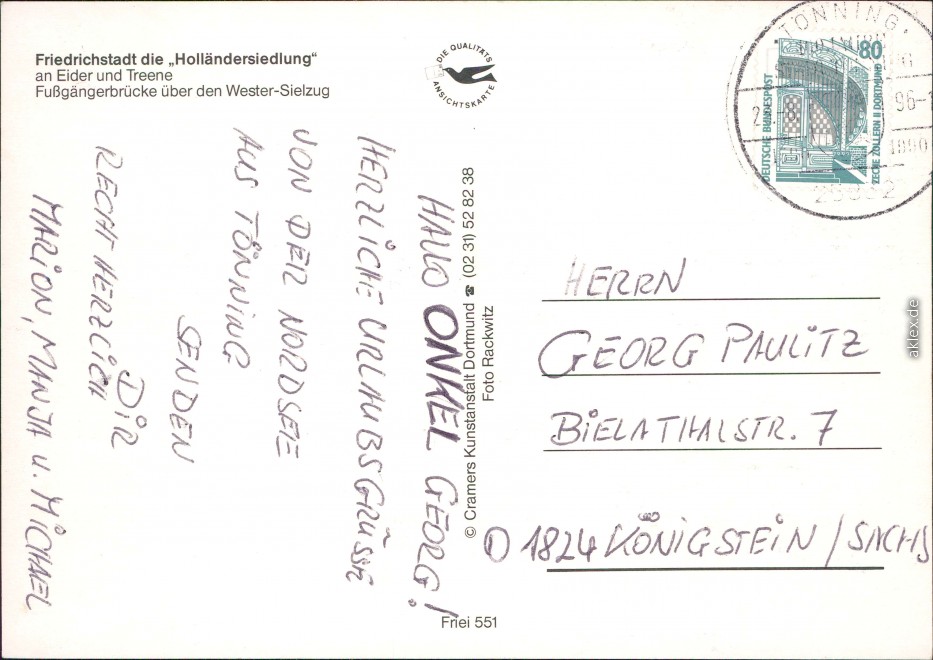 Friedrichstadt die „Holländersiedlung“
an Eider und Treene
Fußgängerbrücke über den Wester-Sielzug
DIE QUALITÄTS
ANSICHTSKARTE
HALLO ONKEL GEORG!
HERZLICHE URLAUBSGRÜSSE
VON DER NORDSEE
AUS TÖNNING
SENDEN
DIR
RECHT HERZLICH
MARION, MANJA u. MICHAEL
© Cramers Kunstanstalt Dortmund ☎ (02 31) 52 82 38
Foto Rackwitz
Friei 551
TÖNNING
80
DEUTSCHE BUNDESPOST
ZECHE ZOLLERN II DORTMUND
HERRN
GEORG PAULITZ
BIELATHALSTR. 7
O 1824 KÖNIGSTEIN / SACHS
aklex.de